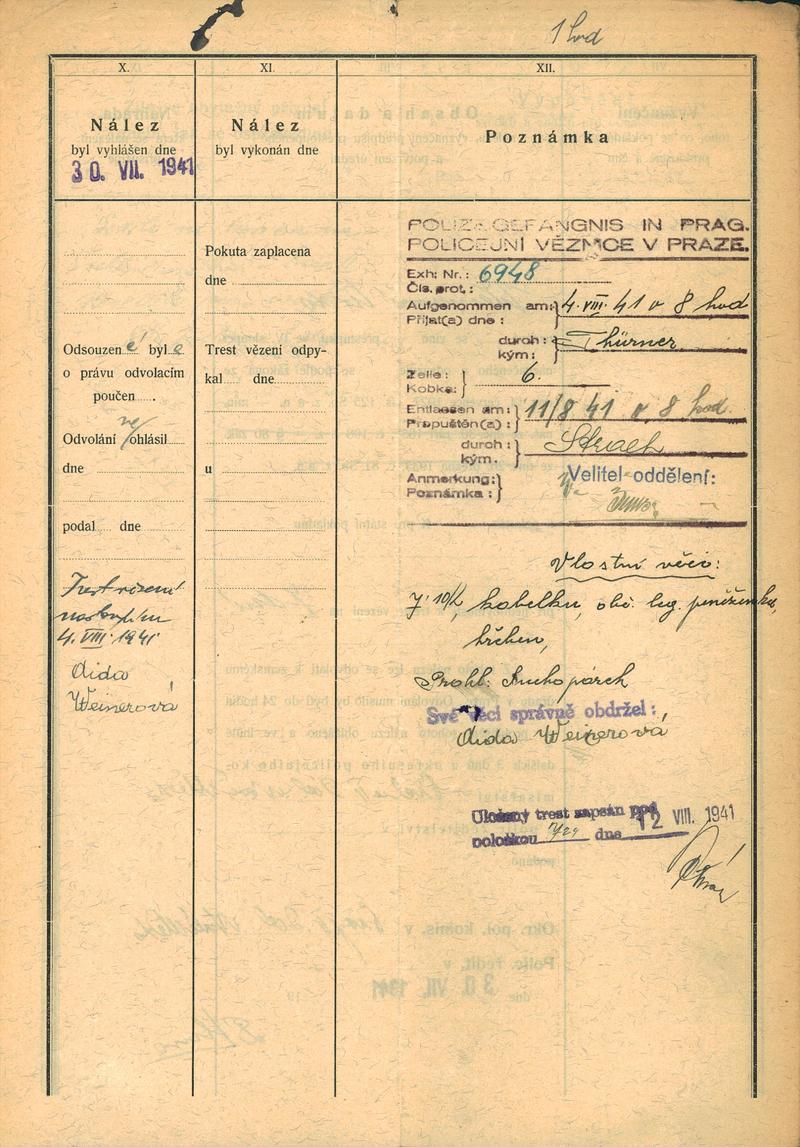 1 hod
X.
Nález
byl vyhlášen dne
30. VII. 1941
Odsouzen é byl a
o právu odvolacím
poučen .
Odvolání ne/ohlásil
dne
podal dne
nastoupen
4. VIII. 1941
Aida
Weinerová
XI.
Nález
byl vykonán dne
Pokuta zaplacena
dne
Trest vězení odpy-
kal dne
u
XII.
Poznámka
POLIZEIGEFÄNGNIS IN PRAG.
POLICEJNÍ VĚZNICE V PRAZE.
Exh: Nr.: 6948
Čís. prot.:
Aufgenommen am: 4. VIII. 41 v 8 hod
Přijat(a) dne:
durch: Thürner
kým:
Zelle: 6.
Kobka:
Entlassen am: 11/8 41 v 8 hod.
Propuštěn(a):
durch:
kým.
Anmerkung:
Poznámka:
Velitel oddělení:
Vlastní věci:
kabelku, obč. leg. peněženku,
hřeben,
Prohl:
Své věci správně obdržel:
Aida Weinerová
Uložený trest zapsán pod
položkou dne 12 VIII. 1941